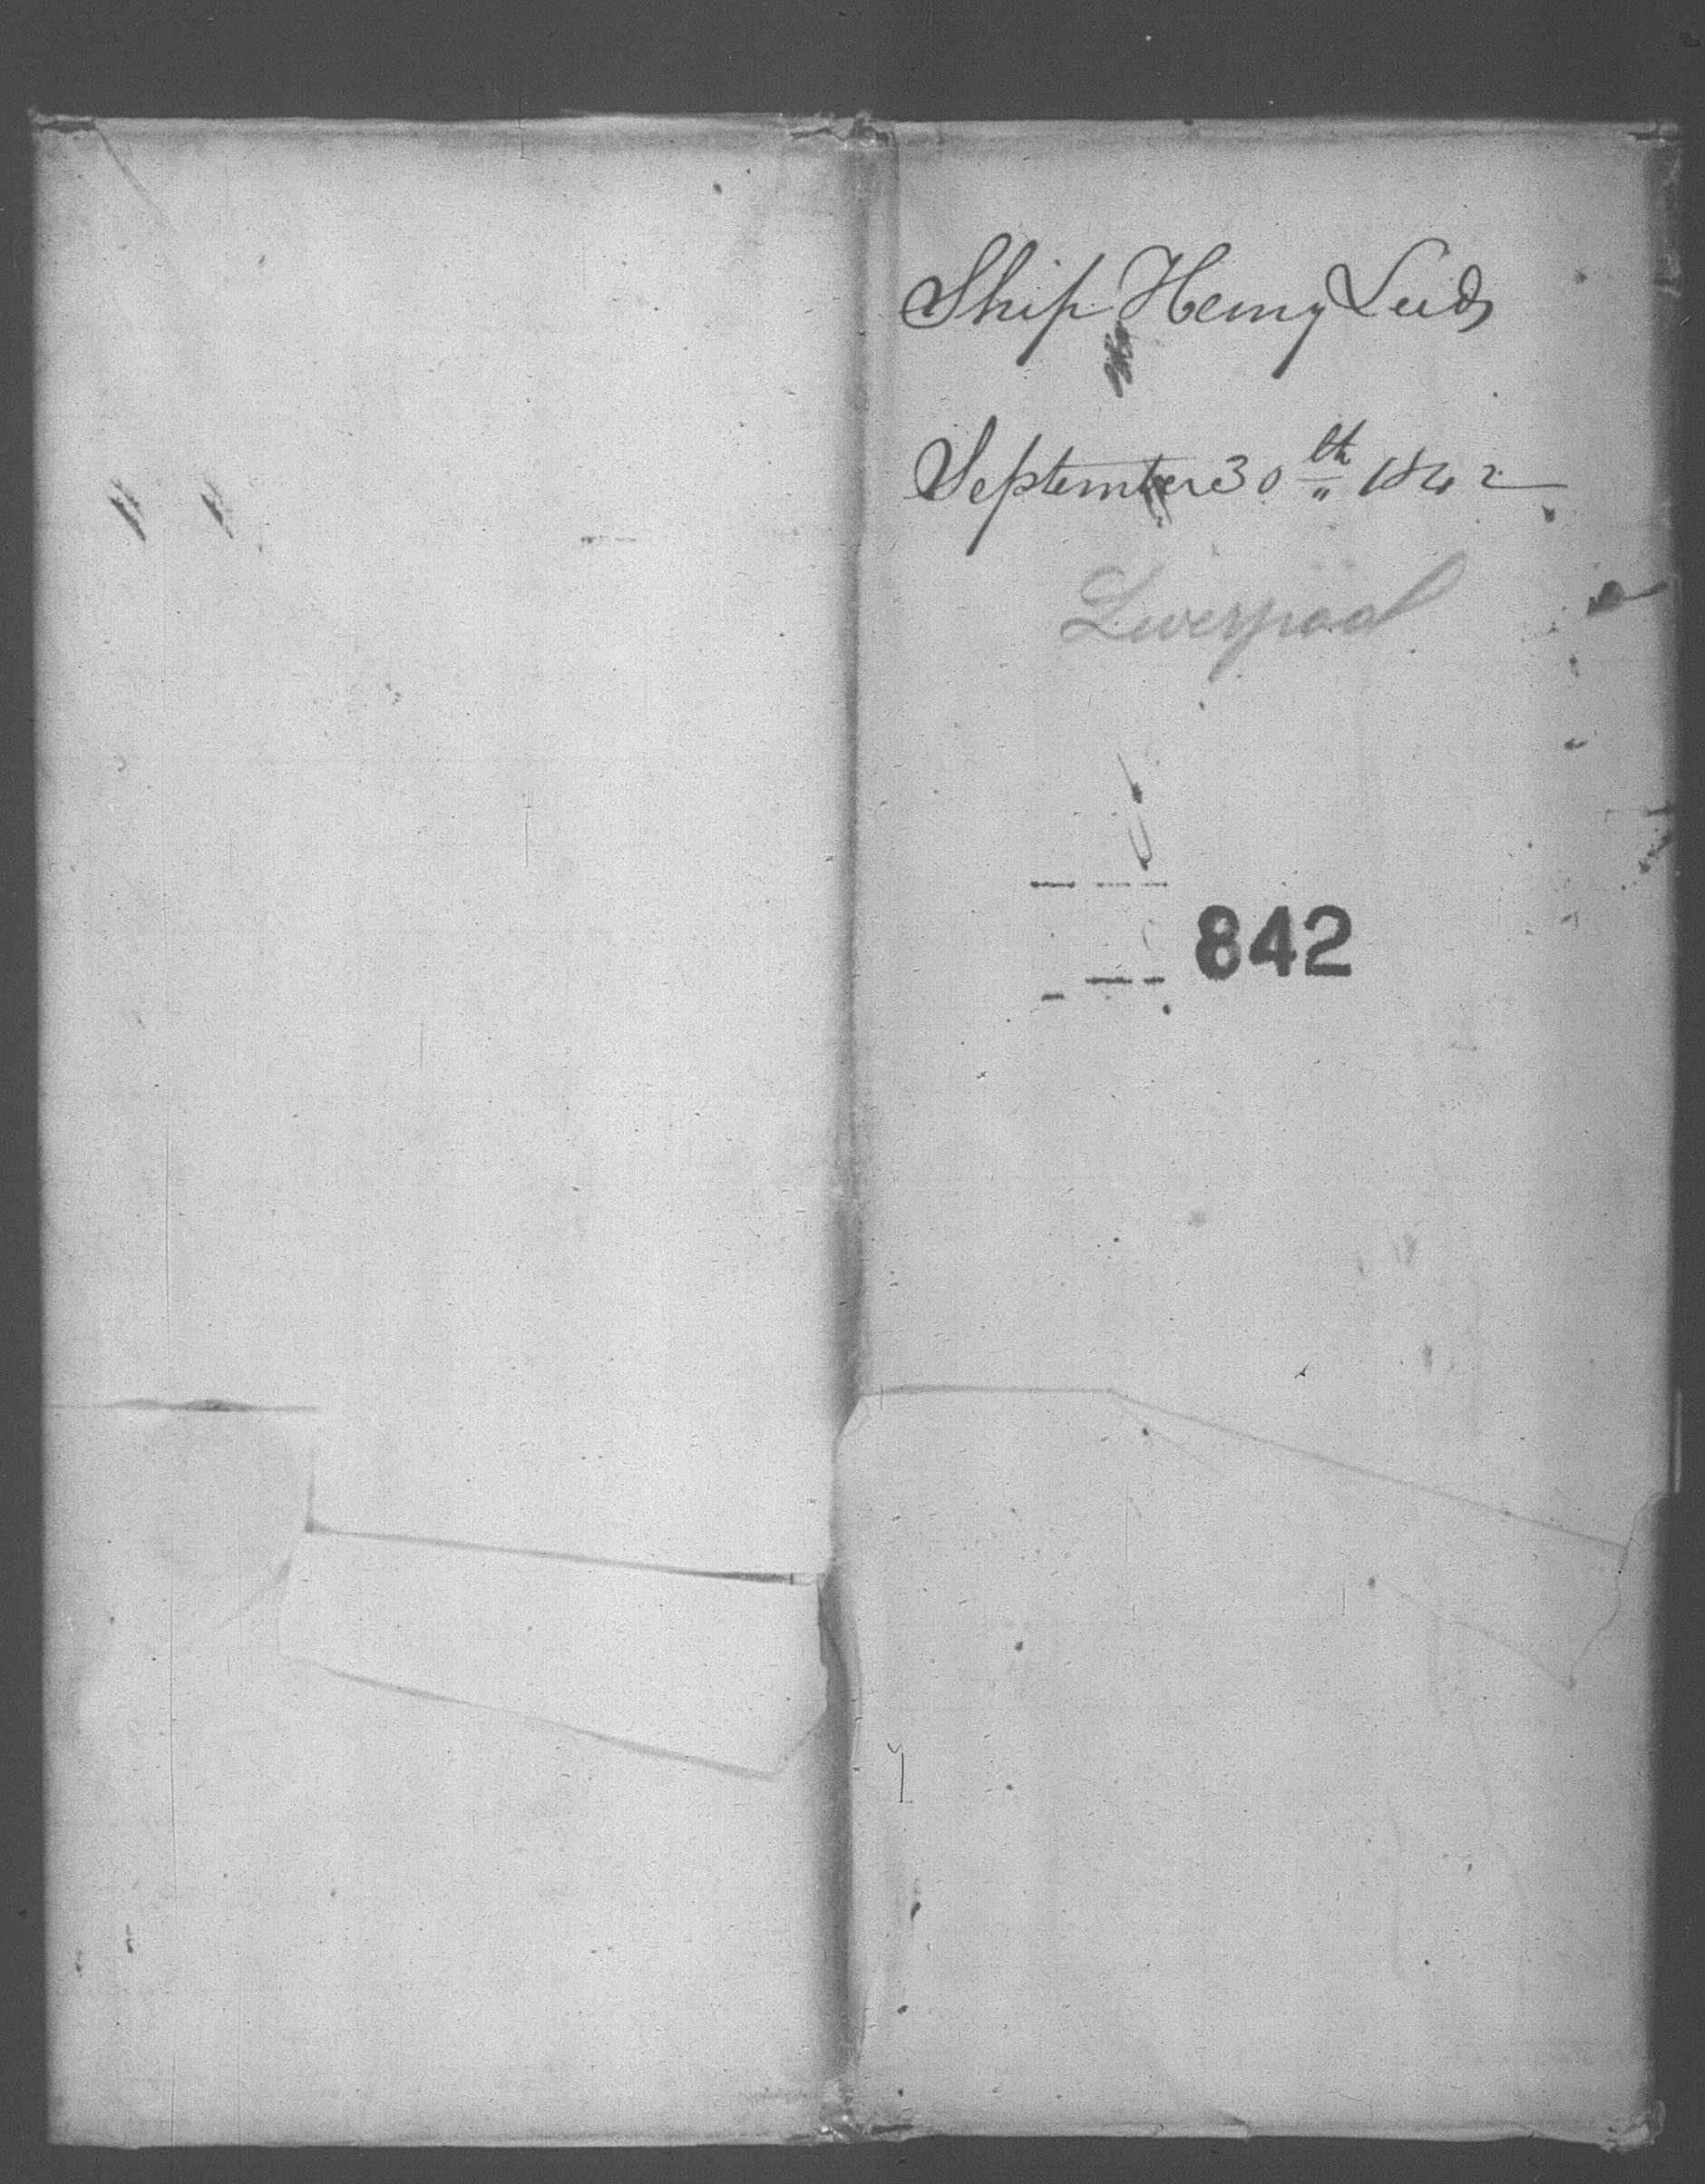 Ship Henry Leeds
September 30th 1842
Liverpool
842